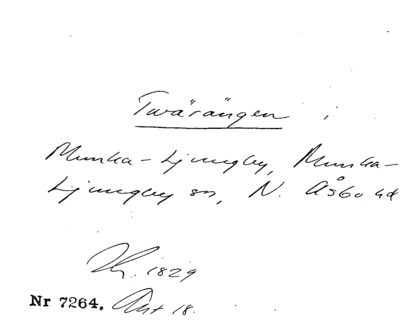 Twärängen i
Munka-Ljungby, Munka-
Ljungby sn, N. Åsbo hd
1829
Nr 7264. Ant 18.